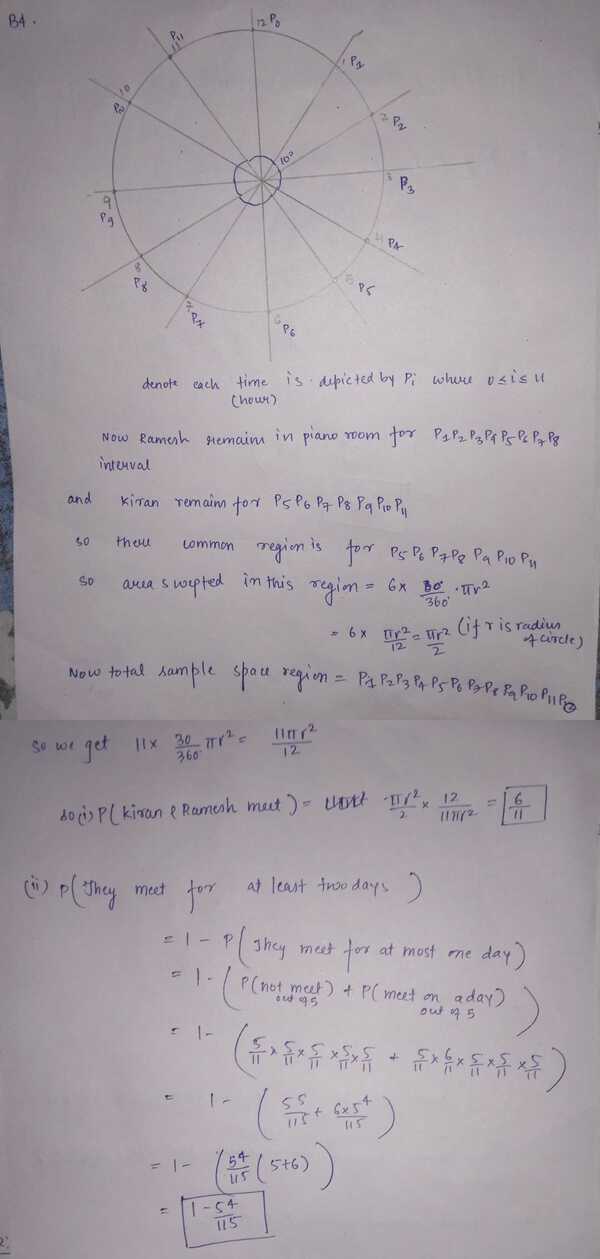 B4.
12 P0
P11
11
1 P1
10
P10
2 P2
10°
3 P3
9
P9
4 P4
8
P8
5 P5
7
P7
6
P6
denote each time is depicted by Pi where 0≤i≤11
(hour)
Now Ramesh remains in piano room for P1P2P3P4P5P6P7P8
interval
and kiran remain for P5 P6 P7 P8 P9 P10 P11
so there common region is for P5 P6 P7 P8 P9 P10 P11
so area swepted in this region = 6× 30°/360° · πr²
= 6× πr²/12 = πr²/2 (if r is radius of circle)
Now total sample space region = P1 P2 P3 P4 P5 P6 P7 P8 P9 P10 P11 P0
so we get 11× 30/360° πr² = 11πr²/12
so (i) P(kiran & Ramesh meet) = πr²/2 × 12/11πr² = 6/11
(ii) P(They meet for at least two days)
= 1 - P(They meet for at most one day)
= 1 - (P(not meet) out of 5 + P(meet on a day) out of 5)
= 1 - (5/11 × 5/11 × 5/11 × 5/11 × 5/11 + 5/11 × 6/11 × 5/11 × 5/11 × 5/11)
= 1 - (5⁵/11⁵ + 6×5⁴/11⁵)
= 1 - (5⁴/11⁵ (5+6))
= 1 - 5⁴/11⁵